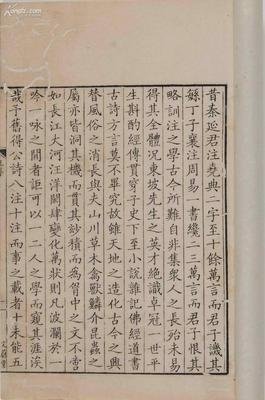 昔秦延君注堯典二字至十餘萬言而君子譏其
繇丁子襄注周易一書纔二三萬言而君子恨其
略訓注之學古今所難自非集衆人之長殆未易
得其全體況東坡先生之英才絶識卓冠一世平
生斟酌經傳貫穿子史下至小說雜記佛經道書
古詩方言莫不畢究故雖天地之造化古今之興
替風俗之消長與夫山川草木禽獸鱗介昆蟲之
屬亦皆洞其機而貫其妙積而為胷中之文不啻
如長江大河汪洋閎肆變化萬狀則凡波瀾於一
吟一咏之間者詎可以一二人之學而窺其涯涘
哉予舊得公詩八注十注而事之載者十未能五